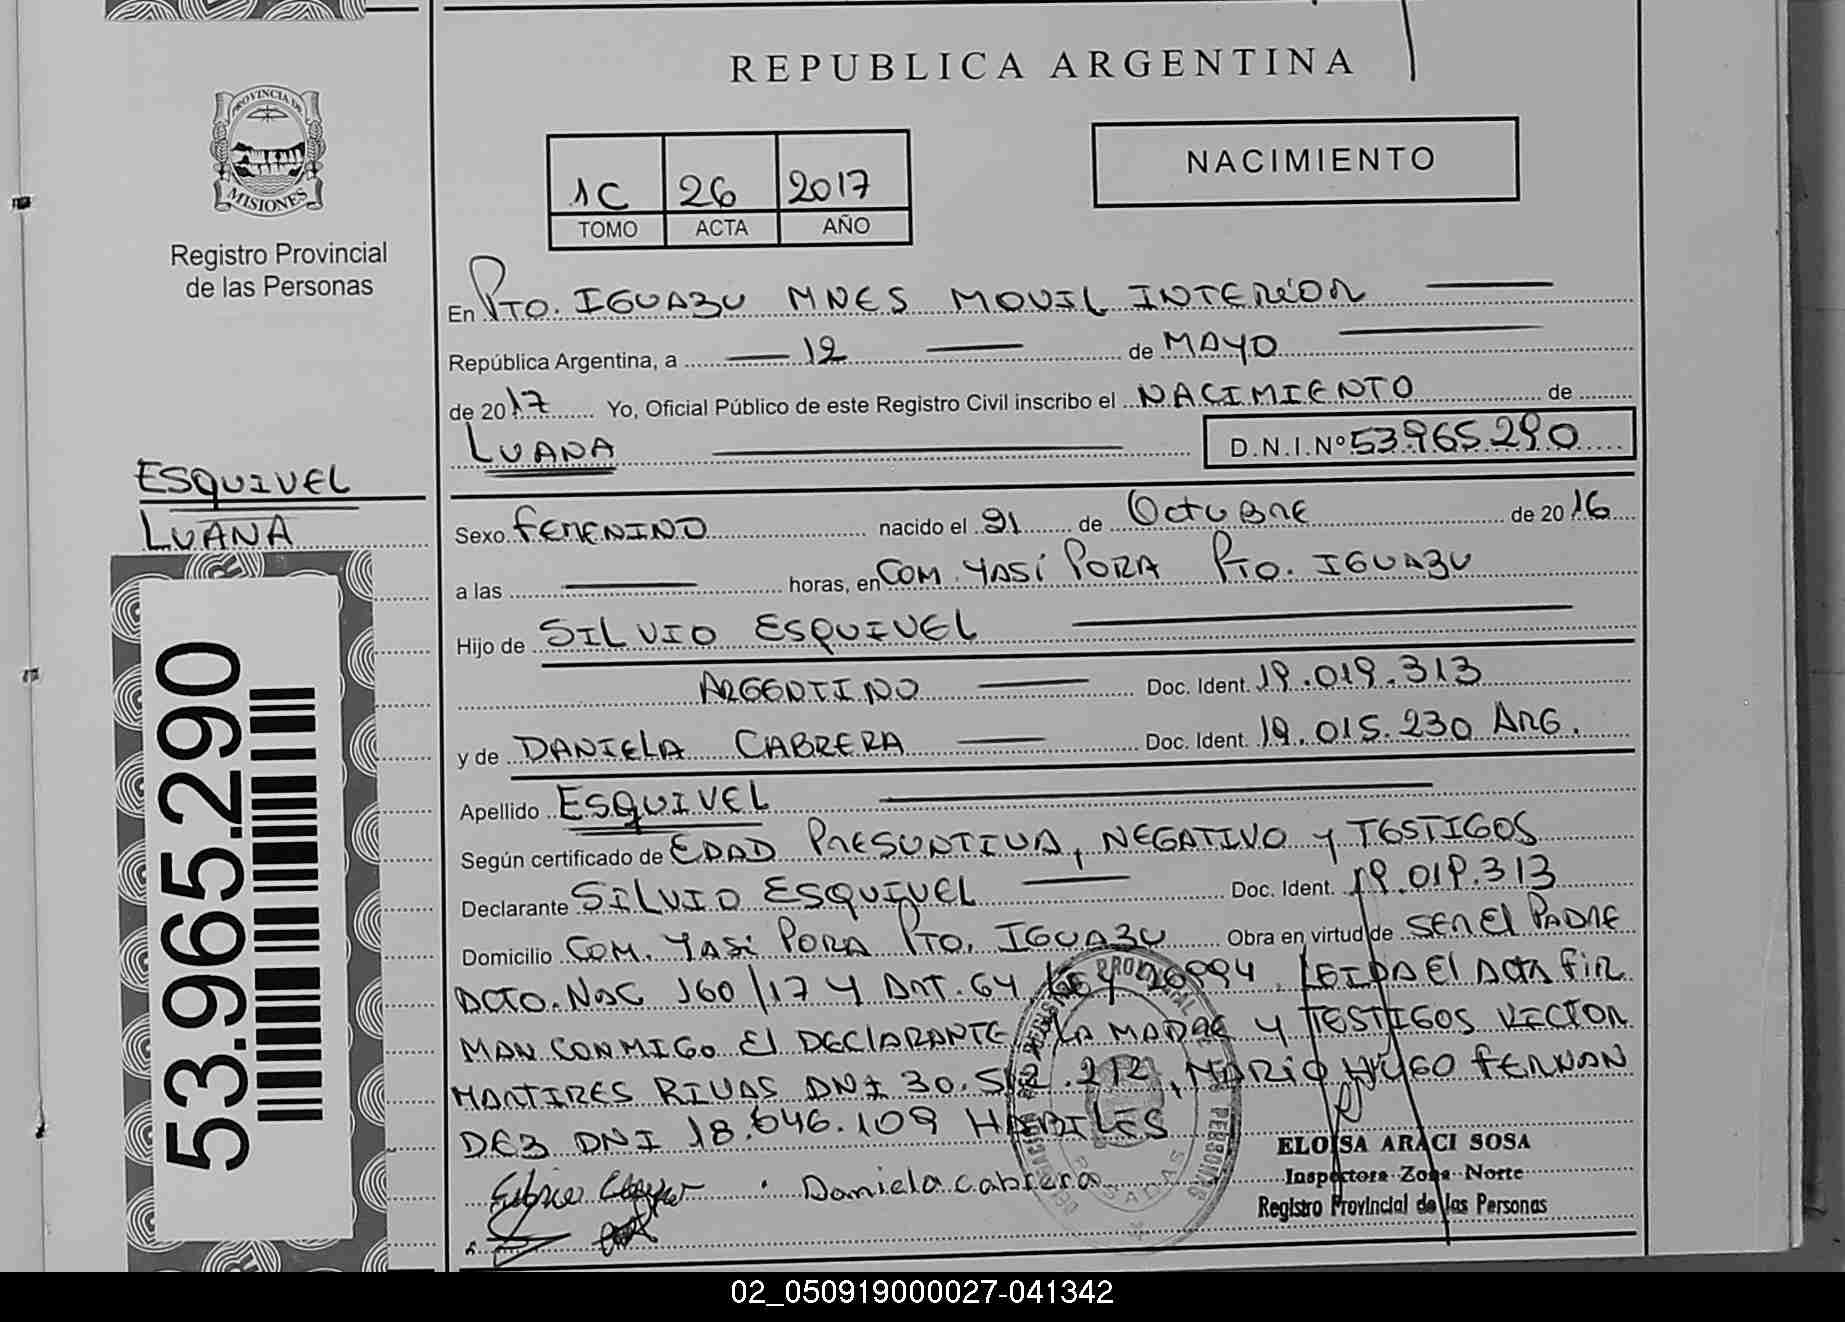 REPUBLICA ARGENTINA
PROVINCIA DE
MISIONES
Registro Provincial
de las Personas
NACIMIENTO
1C 26 2017
TOMO ACTA AÑO
En PTO. IGUAZU MNES MOVIL INTERIOR
República Argentina, a 12 de MAYO
de 2017 Yo, Oficial Público de este Registro Civil inscribo el NACIMIENTO de
LUANA D.N.I.Nº 53.965.290
ESQUIVEL
LUANA
53.965.290
Sexo FEMENINO nacido el 21 de OCTUBRE de 2016
a las horas, en COM. YASÍ PORA PTO. IGUAZU
Hijo de SILVIO ESQUIVEL
ARGENTINO Doc. Ident. 19.019.313
y de DANIELA CABRERA Doc. Ident. 19.015.230 ARG.
Apellido ESQUIVEL
Según certificado de EDAD PRESUNTIVA, NEGATIVO Y TESTIGOS
Declarante SILVIO ESQUIVEL Doc. Ident. 19.019.313
Domicilio COM. YASÍ PORA PTO. IGUAZU Obra en virtud de SER EL PADRE
DCTO. NAC 160/17 Y ART. 64 LEY 26994. LEIDA EL ACTA FIR
MAN CONMIGO EL DECLARANTE, LA MADRE Y TESTIGOS VICTOR
MARTIRES RIVAS DNI 30.512.212, MARIO HUGO FERNAN
DEZ DNI 18.646.109 HABILES
Daniela cabrera
ELOISA ARACI SOSA
Inspectora Zona Norte
Registro Provincial de las Personas
02_050919000027-041342